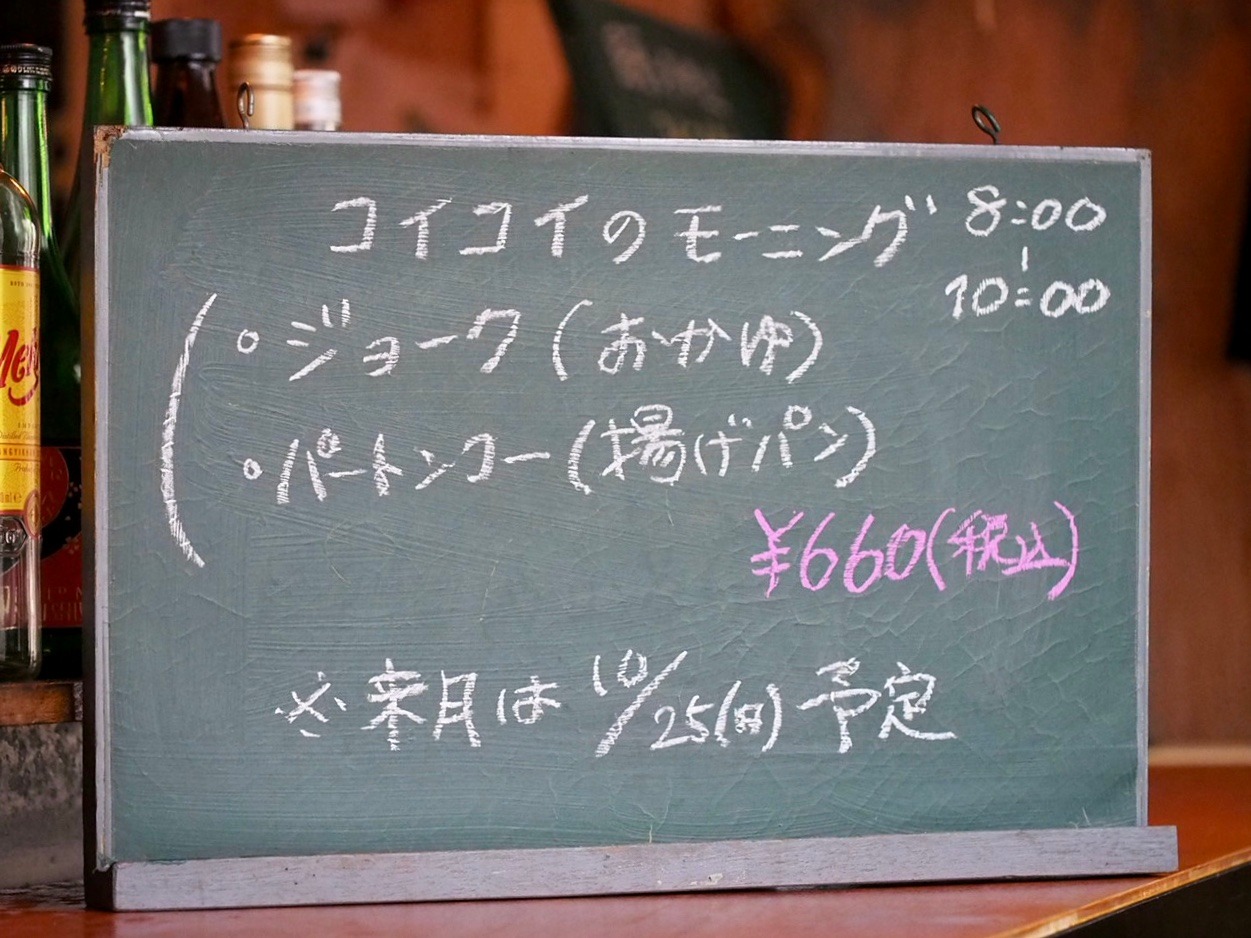 コイコイのモーニング 8:00
|
10:00
。ジョーク(おかゆ)
。パートンコー(揚げパン)
¥660(税込)
※来月は10/25(日)予定